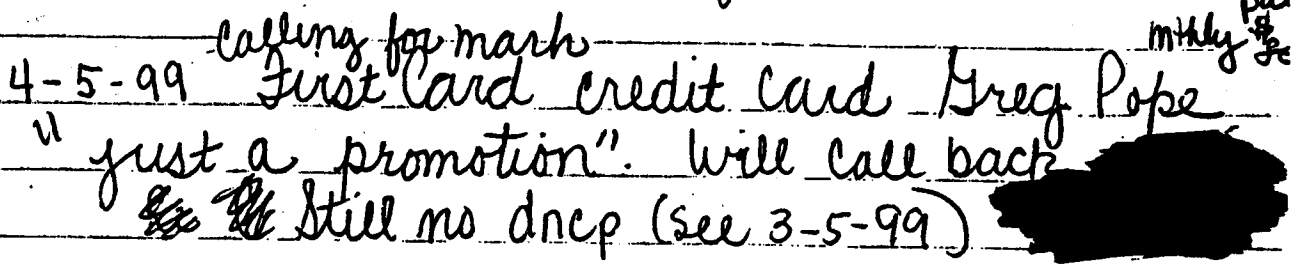 calling for mark
mthly
4-5-99 First Card credit card Greg Pope
" just a promotion". Will call back
Still no dncp (see 3-5-99)